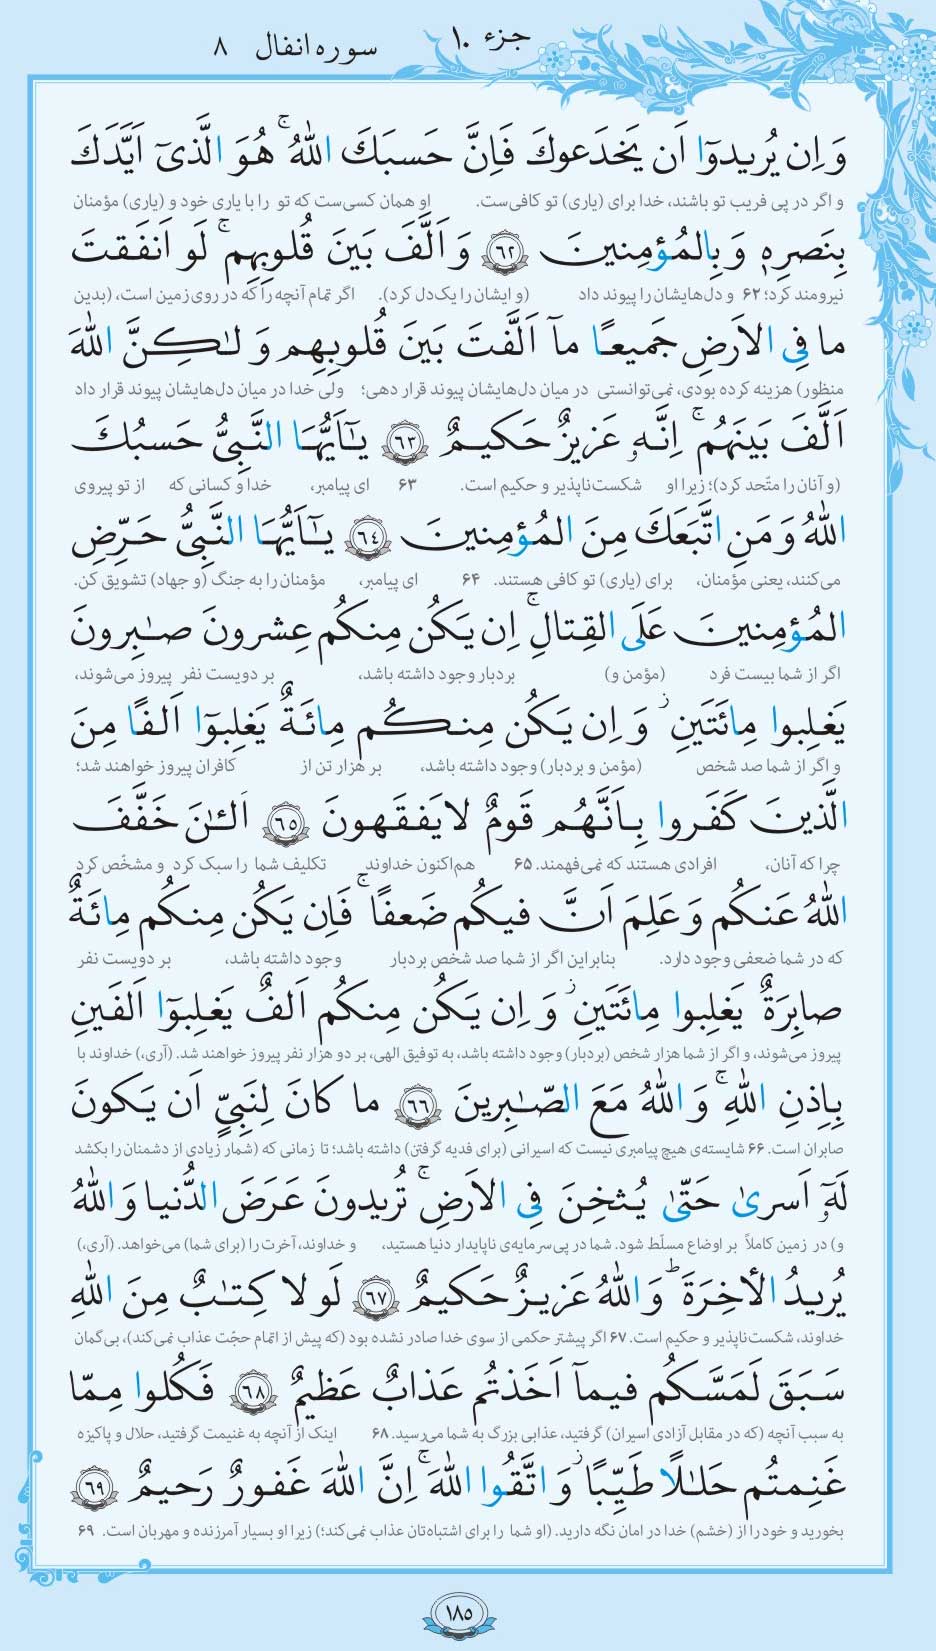 جزء ۱۰
سوره انفال ۸
وَ اِن یُریدوٓا اَن یَخدَعوکَ فَاِنَّ حَسبَکَ اللهُ ۚ هُوَ الَّذیٓ اَیَّدَکَ
و اگر در پی فریب تو باشند، خدا برای (یاری) تو کافی‌ست. او همان کسی‌ست که تو را با یاری خود و (یاری) مؤمنان
بِنَصرِهٖ وَ بِالمُؤمِنینَ ﴿٦٢﴾ وَ اَلَّفَ بَینَ قُلوبِهِم ۚ لَو اَنفَقتَ
نیرومند کرد؛ ۶۲ و دل‌هایشان را پیوند داد (و ایشان را یک‌دل کرد). اگر تمام آنچه را که در روی زمین است، (بدین
ما فِی الاَرضِ جَمیعًا مآ اَلَّفتَ بَینَ قُلوبِهِم وَ لٰکِنَّ اللهَ
منظور) هزینه کرده بودی، نمی‌توانستی در میان دل‌هایشان پیوند قرار دهی؛ ولی خدا در میان دل‌هایشان پیوند قرار داد
اَلَّفَ بَینَهُم ۚ اِنَّهٗ عَزیزٌ حَکیمٌ ﴿٦٣﴾ یٰٓاَیُّهَا النَّبِیُّ حَسبُکَ
(و آنان را متّحد کرد)؛ زیرا او شکست‌ناپذیر و حکیم است. ۶۳ ای پیامبر، خدا و کسانی که از تو پیروی
اللهُ وَ مَنِ اتَّبَعَکَ مِنَ المُؤمِنینَ ﴿٦٤﴾ یٰٓاَیُّهَا النَّبِیُّ حَرِّضِ
می‌کنند، یعنی مؤمنان، برای (یاری) تو کافی هستند. ۶۴ ای پیامبر، مؤمنان را به جنگ (و جهاد) تشویق کن.
المُؤمِنینَ عَلَی القِتالِ ۚ اِن یَکُن مِنکُم عِشرونَ صٰبِرونَ
اگر از شما بیست فرد (مؤمن و) بردبار وجود داشته باشد، بر دویست نفر پیروز می‌شوند،
یَغلِبوا مِائَتَینِ ۚ وَ اِن یَکُن مِنکُم مِائَةٌ یَغلِبوٓا اَلفًا مِنَ
و اگر از شما صد شخص (مؤمن و بردبار) وجود داشته باشد، بر هزار تن از کافران پیروز خواهند شد؛
الَّذینَ کَفَروا بِاَنَّهُم قَومٌ لا یَفقَهونَ ﴿٦٥﴾ اَلـٰٔنَ خَفَّفَ
چرا که آنان، افرادی هستند که نمی‌فهمند. ۶۵ هم‌اکنون خداوند تکلیف شما را سبک کرد و مشخّص کرد
اللهُ عَنکُم وَ عَلِمَ اَنَّ فیکُم ضَعفًا ۚ فَاِن یَکُن مِنکُم مِائَةٌ
که در شما ضعفی وجود دارد. بنابراین اگر از شما صد شخص بردبار وجود داشته باشد، بر دویست نفر
صابِرَةٌ یَغلِبوا مِائَتَینِ ۚ وَ اِن یَکُن مِنکُم اَلفٌ یَغلِبوٓا اَلفَینِ
پیروز می‌شوند، و اگر از شما هزار شخص (بردبار) وجود داشته باشد، به توفیق الهی، بر دو هزار نفر پیروز خواهند شد. (آری،) خداوند با
بِاِذنِ اللهِ ۚ وَ اللهُ مَعَ الصّٰبِرینَ ﴿٦٦﴾ ما کانَ لِنَبِیٍّ اَن یَکونَ
صابران است. ۶۶ شایسته‌ی هیچ پیامبری نیست که اسیرانی (برای فدیه گرفتن) داشته باشد؛ تا زمانی که (شمار زیادی از دشمنان را بکشد
لَهٗٓ اَسرىٰ حَتّىٰ یُثخِنَ فِی الاَرضِ ۚ تُریدونَ عَرَضَ الدُّنیا وَ اللهُ
و) در زمین کاملاً بر اوضاع مسلّط شود. شما در پی سرمایه‌ی ناپایدار دنیا هستید، و خداوند، آخرت را (برای شما) می‌خواهد. (آری،)
یُریدُ الأخِرَةَ ۖ وَ اللهُ عَزیزٌ حَکیمٌ ﴿٦٧﴾ لَو لا کِتٰبٌ مِنَ اللهِ
خداوند، شکست‌ناپذیر و حکیم است. ۶۷ اگر پیشتر حکمی از سوی خدا صادر نشده بود (که پیش از اتمام حجّت عذاب نمی‌کند)، بی‌گمان
سَبَقَ لَمَسَّکُم فیمآ اَخَذتُم عَذابٌ عَظیمٌ ﴿٦٨﴾ فَکُلوا مِمّا
به سبب آنچه (که در مقابل آزادی اسیران) گرفتید، عذابی بزرگ به شما می‌رسید. ۶۸ اینک از آنچه به غنیمت گرفتید، حلال و پاکیزه
غَنِمتُم حَلٰلًا طَیِّبًا ۚ وَ اتَّقُوا اللهَ ۚ اِنَّ اللهَ غَفورٌ رَحیمٌ ﴿٦٩﴾
بخورید و خود را از (خشم) خدا در امان نگه دارید. (او شما را برای اشتباه‌تان عذاب نمی‌کند؛) زیرا او بسیار آمرزنده و مهربان است. ۶۹
۱۸۵